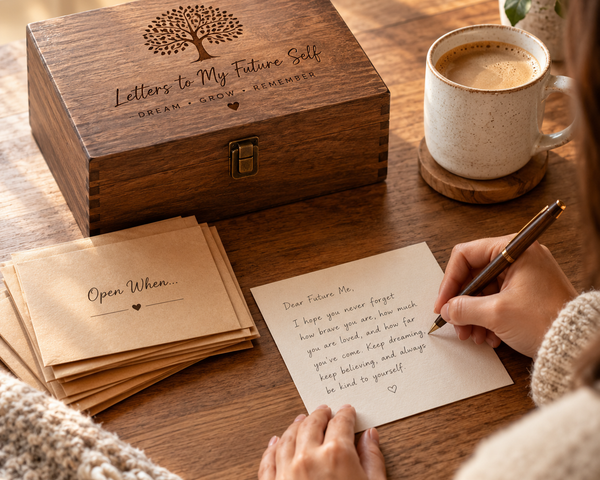 Letters to My Future Self
DREAM • GROW • REMEMBER
Open When...
Dear Future Me,
I hope you never forget
how brave you are, how much
you are loved, and how far
you've come. Keep dreaming,
keep believing, and always
be kind to yourself.